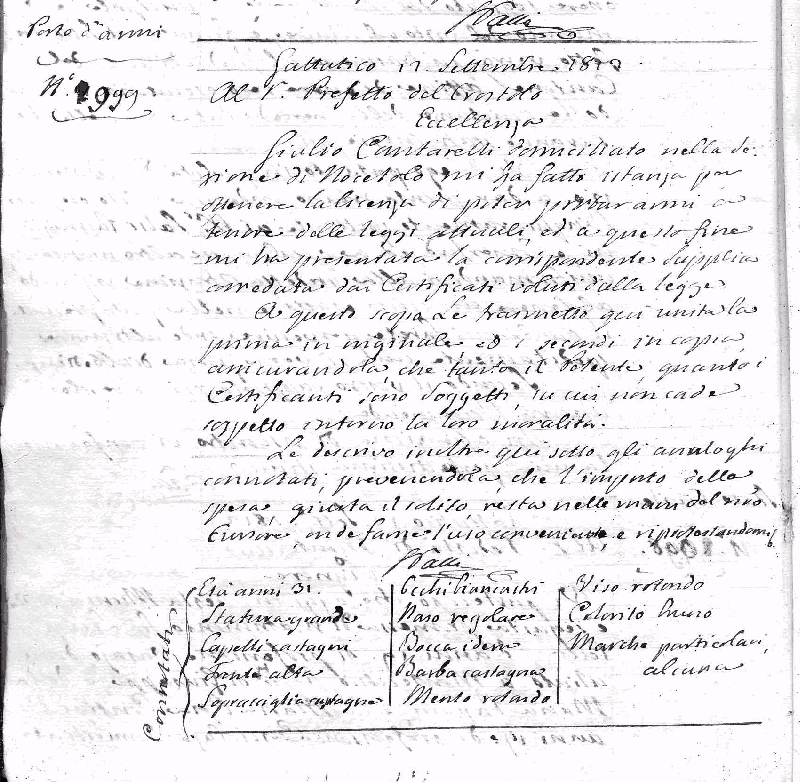 Valli
Porto d'armi
N.° 1999
Gattatico 12 Settembre 1812
Al S.r Prefetto del Crostolo
Eccellenza
Giulio Cantarelli domiciliato nella Se-
zione di Nocetolo mi ha fatto istanza per
ottenere la licenza di poter portar armi a
tenore delle leggi attuali, ed a questo fine
mi ha presentata la corrispondente supplica
corredata dai Certificati voluti dalla legge
A questo scopo Le trasmetto qui unita la
prima in originale, ed i secondi in copia
assicurandola, che tanto il Petente, quanto i
Certificanti sono Soggetti, su cui non cade
sospetto intorno la loro moralità.
Le descrivo inoltre qui sotto gli analoghi
connotati, prevenendola, che l'importo della
spesa, giusta il solito, resta nelle mani del mio
Cursore onde farne l'uso conveniente e riprotestandomi
Valli
Connotati
Età anni 31.
Statura grande
Capelli castagni
Fronte alta
Sopracciglia castagne
Occhi biancastri
Naso regolare
Bocca idem
Barba castagna
Mento rotondo
Viso rotondo
Colorito bruno
Marche particolari,
alcuna